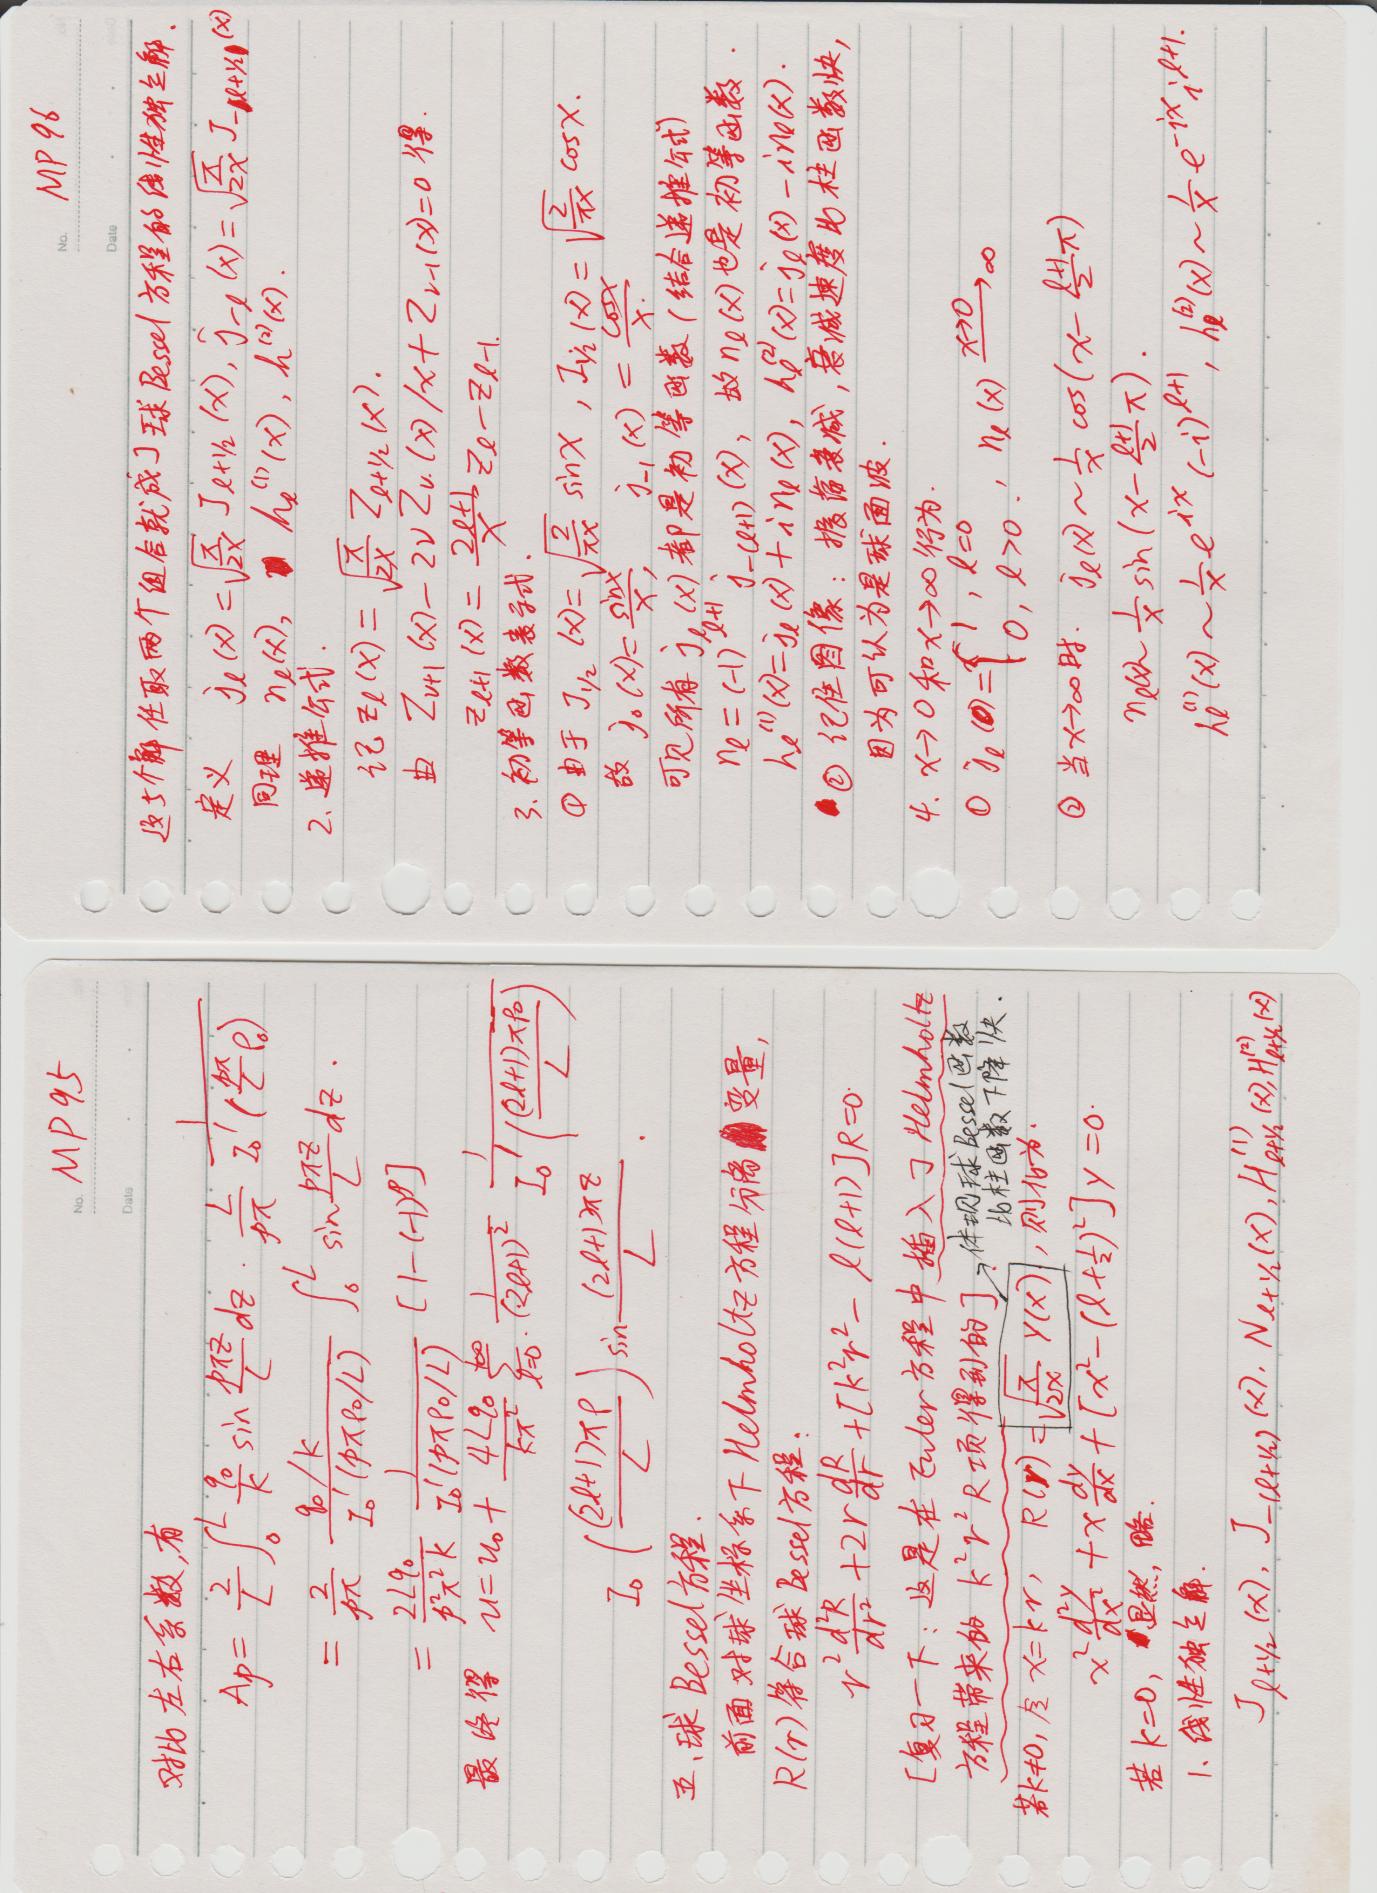 No. MP 95
Date
对比左右系数,有
Ap = 2/L ∫₀ᴸ q₀/k sin pπz/L dz · L/pπ 1/I₀'(pπ/L ρ₀)
= 2/pπ q₀/k / I₀'(pπρ₀/L) ∫₀ᴸ sin pπz/L dz.
= 2Lq₀/p²π²k 1/I₀'(pπρ₀/L) [1-(-1)ᵖ]
最终得 u=u₀+ 4Lq₀/kπ² Σ_{l=0}^{+∞} 1/(2l+1)² 1/I₀'((2l+1)πρ₀/L)
I₀((2l+1)πρ/L) sin (2l+1)πz/L .
五、球Bessel方程.
前面对球坐标系下Helmholtz方程分离变量,
R(r)符合球Bessel方程:
r² d²R/dr² +2r dR/dr +[k²r²- l(l+1)]R=0.
[复习一下:这是在Euler方程中插入了Helmholtz
方程带来的 k²r²R项得到的].
体现球Bessel函数
比柱函数下降快.
若k≠0,令x=kr, R(r)=√(π/2x) y(x),则化为.
x² d²y/dx² +x dy/dx +[x²-(l+1/2)²]y=0.
若k=0, 显然,略.
1、线性独立解.
J_{l+1/2}(x), J_{-(l+1/2)}(x), N_{l+1/2}(x), H_{l+1/2}^{(1)}(x), H_{l+1/2}^{(2)}(x)
No. MP 96
Date
这5个解任取两个组合就成了球Bessel方程的线性独立解.
定义 j_l(x)=√(π/2x) J_{l+1/2}(x), j_{-l}(x)=√(π/2x) J_{-l+1/2}(x)
同理 n_l(x), h_l^{(1)}(x), h^{(2)}(x).
2、递推公式.
记 z_l(x)= √(π/2x) Z_{l+1/2}(x).
由 Z_{ν+1}(x)-2νZ_ν(x)/x+Z_{ν-1}(x)=0得.
z_{l+1}(x)= 2l+1/x z_l-z_{l-1}.
3、初等函数表示式.
① 由于 J_{1/2}(x)=√(2/πx) sinx, J_{-1/2}(x)=√(2/πx) cosx.
故 j₀(x)= sinx/x, j_{-1}(x) = cosx/x.
可见所有j_l(x)都是初等函数(结合递推公式)
n_l=(-1)^{l+1} j_{-(l+1)}(x), 故n_l(x)也是初等函数.
h_l^{(1)}(x)=j_l(x)+i n_l(x), h_l^{(2)}(x)=j_l(x)-i n_l(x).
② 记住图像:振荡衰减,衰减速度比柱函数快,
因为可认为是球面波.
4、x→0和x→∞行为.
① j_l(0)={1, l=0
0, l>0. , n_l(x) x→0→ ∞
② 当x→∞时. j_l(x)~ 1/x cos(x- l+1/2 π)
n_l(x)~ 1/x sin(x- l+1/2 π).
h_l^{(1)}(x)~ 1/x e^{ix}(-i)^{l+1}, h_l^{(2)}(x)~ 1/x e^{-ix} i^{l+1}.